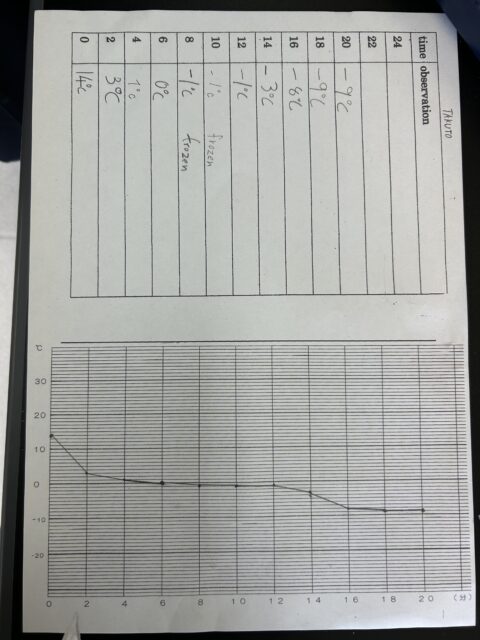 TAKUTO
time observation
24
22
20 -9°C
18 -9°C
16 -8°C
14 -3°C
12 -1°C
10 -1°C frozen
8 -1°C frozen
6 0°C
4 1°C
2 3°C
0 14°C
℃
30
20
10
0
-10
-20
0 2 4 6 8 10 12 14 16 18 20 (分)